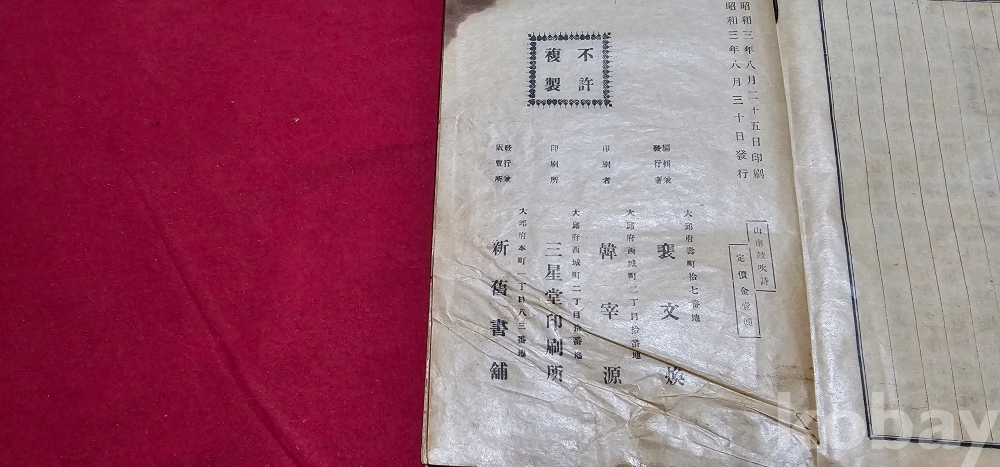 昭和三年八月二十五日印刷
昭和三年八月三十日發行
山南鼓吹詩
定價金壹圓
不許
複製
編輯兼
發行者
大邱府壽町拾七番地
裵文煥
印刷者
大邱府西城町二丁目拾番地
韓宰源
印刷所
大邱府西城町二丁目拾番地
三星堂印刷所
發行兼
販賣所
大邱府本町一丁目八三番地
新舊書舖
kobay